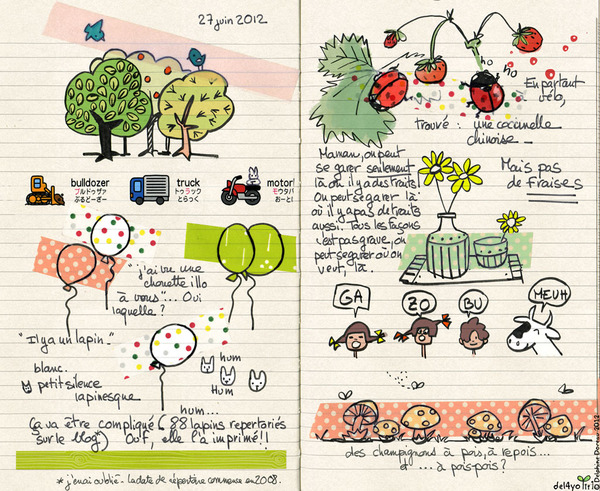 27 juin 2012
bulldozer
ブルドッザァ
ぶるどーざー
truck
トゥラック
とらっく
motor
モウタバ
おーと
"j'ai vu une
chouette illo
à vous"... Oui
laquelle ?
"Il y a un lapin"
blanc.
petit silence
lapinesque
hum
Hum
hum...
Ça va être compliqué (88 lapins repertoriés
sur le blog*) Ouf, elle l'a imprimé !!
* j'aurai oublié - la date de répertoire commence en 2008.
ho
ho
En partant
à vélo,
trouvé : une coccinelle
chinoise
Maman, on peut
se garer seulement
là où il y a des traits
On peut se garer là
où il y a pas de traits
aussi. Tous les façons
c'est pas grave, on
peut se garer où on
veut, là.
Mais pas
de fraises
GA
ZO
BU
MEUH
des champignons à pois, à repois...
et ... à pois-pois ?
del4yo
© Delphine Doreau 2012